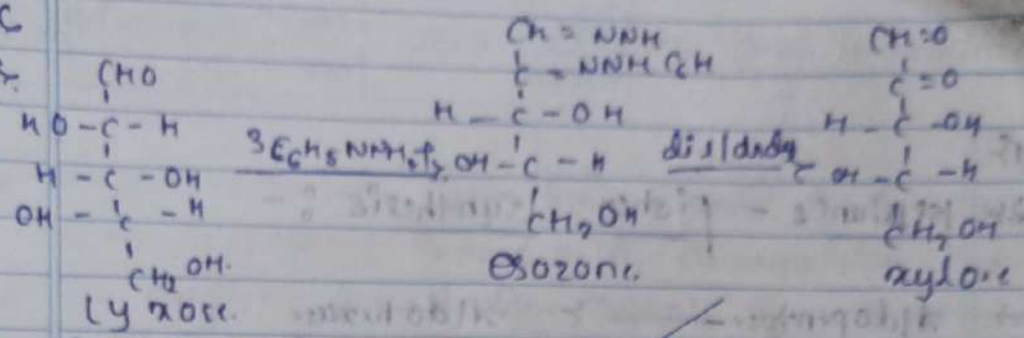 CHO
HO - C - H
H - C - OH
OH - C - H
CH2 OH.
Lyxose.
3C6H5NNH2
CH = NNH
C = NNHC6H
H - C - OH
OH - C - H
CH2OH
esozone.
CH=O
C=O
H - C - OH
OH - C - H
CH2OH
xylose